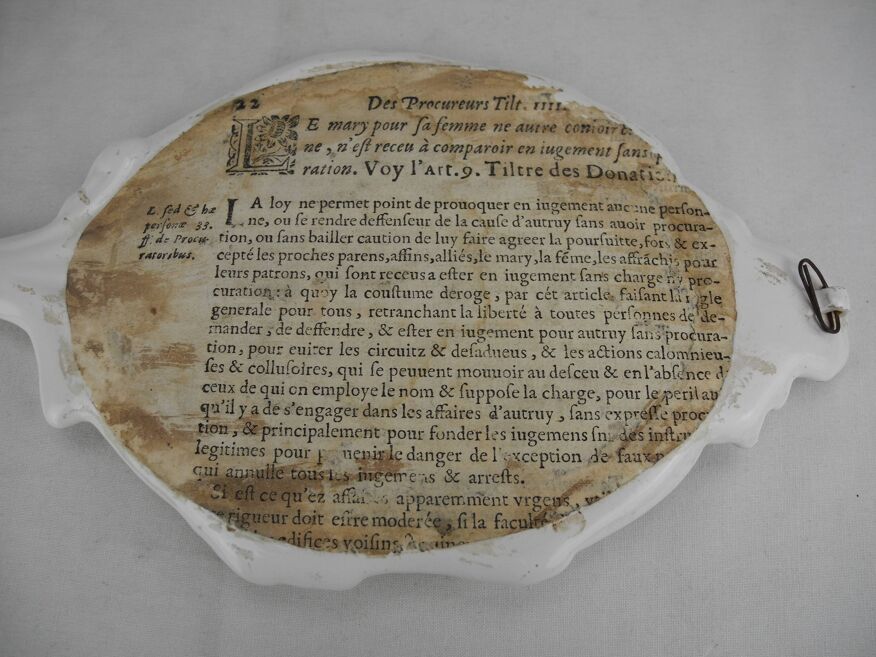 22 Des Procureurs Tilt. IIII.
LE mary pour sa femme ne autre
ne, n'est receu à comparoir en iugement sans
ration. Voy l'Art. 9. Tiltre des
L. sed & hæ
personæ 33.
ff. de Procu-
ratoribus.
LA loy ne permet point de prouoquer en iugement aucune person-
ne, ou se rendre deffenseur de la cause d'autruy sans auoir procura-
tion, ou sans bailler caution de luy faire agreer la poursuitte, fors & ex-
cepté les proches parens, affins, alliés, le mary, la féme, les affrāchis pour
leurs patrons, qui sont receus a ester en iugement sans charge ny pro-
curation: à quoy la coustume deroge, par cét article, faisant la
generale pour tous, retranchant la liberté à toutes personnes de de-
mander, de deffendre, & ester en iugement pour autruy sans procura-
tion, pour euiter les circuitz & desadueus, & les actions calomnieu-
ses & collusoires, qui se peuuent mouuoir au desceu & en l'absence
ceux de qui on employe le nom & suppose la charge, pour le peril
qu'il y a de s'engager dans les affaires d'autruy, sans expresse
tion, & principalement pour fonder les iugemens des
legitimes pour le danger de l'exception de faux
qui annulle tous les iugemens & arrests.
Si est ce qu'ez apparemment vrgens,
rigueur doit estre moderée, si la
voisins